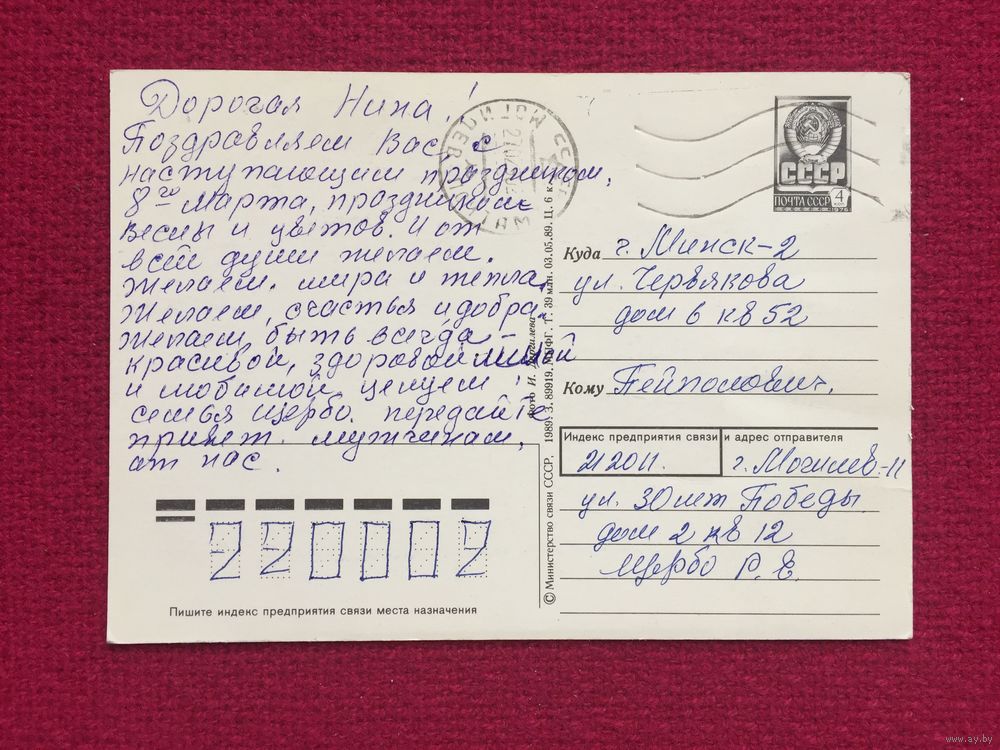 Дорогая Нина!
Поздравляем Вас с
наступающим праздником,
8го Марта, праздником
весны и цветов. И от
всей души желаем.
Желаем. мира и тепла,
Желаем, счастья и добра.
Желаем, быть всегда –
красивой, здоровой милой
и любимой, целуем!
семья Щербо. передайте
привет. мужчинам,
от нас.
220002
Пишите индекс предприятия связи места назначения
МОГИЛЕВ
СССР
ПОЧТА СССР 4
1976
Куда г. Минск-2
ул. Червякова
дом 6 кв 52
Кому
Индекс предприятия связи и адрес отправителя
212011. г. Могилев-11
ул. 30 лет Победы
дом 2 кв 12
Щербо Р. Е.
© Министерство связи СССР. 1989. З. 89919. МПФГ. Т. 39 млн. 03.05.89. Ц. 6 к.
Фото И.
www.ay.by